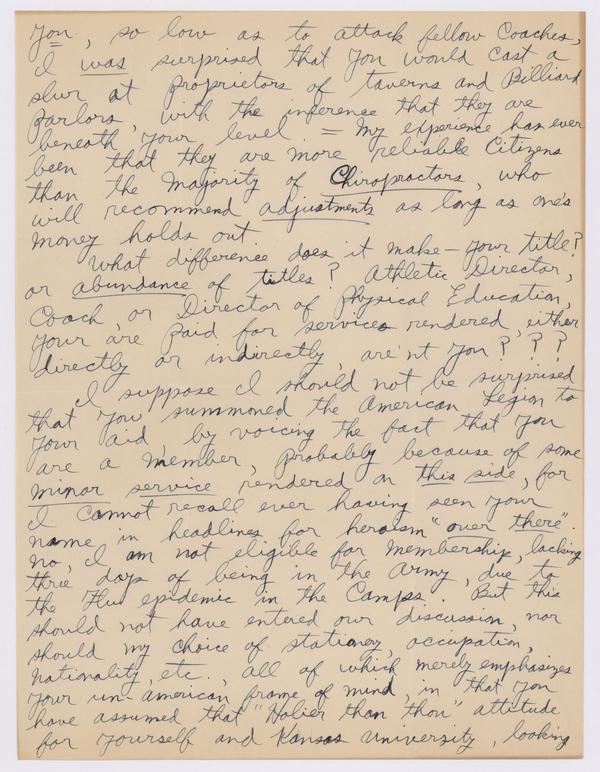 you, so low as to attack fellow Coaches,
I was surprised that you would cast a
slur at proprietors of taverns and Billiard
Parlors, with the inference that they are
beneath your level. = My experience has ever
been that they are more reliable Citizens
than the Majority of Chiropractors, who
will recommend adjustments as long as one's
money holds out.
What difference does it make - your title?
or abundance of titles? Athletic Director,
Coach, or Director of Physical Education,
your are paid for services rendered, either
directly or indirectly, are'nt you? ? ?
I suppose I should not be surprised
that you summoned the American Legion to
your aid, by voicing the fact that you
are a member, probably because of some
minor service rendered on this side, for
I cannot recall ever having seen your
name in headlines for heroism "over there".
No, I am not eligible for membership, lacking
three days of being in the Army, due to
the Flu epidemic in the Camps. But this
should not have entered our discussion, nor
should my choice of stationery, occupation,
nationality, etc., all of which merely emphasizes
your un-american frame of mind, in that you
have assumed that "Holier than thou" attitude
for yourself and Kansas University, looking